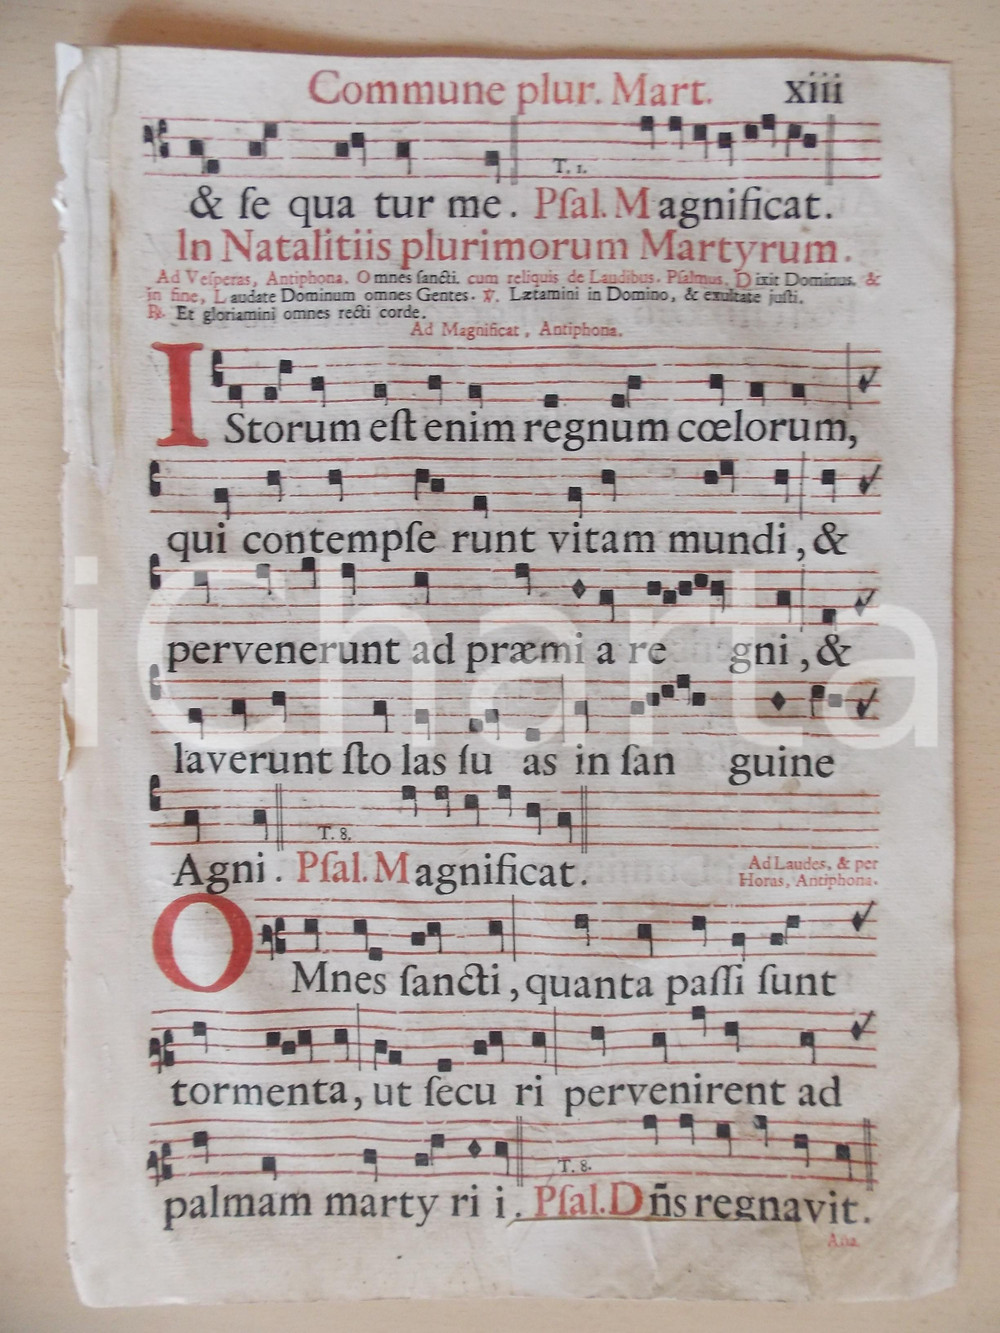 Commune plur. Mart. xiii
T. 1.
& ſe qua tur me. Pſal. Magnificat.
In Natalitiis plurimorum Martyrum.
Ad Veſperas, Antiphona. Omnes ſancti. cum reliquis de Laudibus. Pſalmus, Dixit Dominus. &
in fine, Laudate Dominum omnes Gentes. ℣. Lætamini in Domino, & exultate juſti.
℟. Et gloriamini omnes recti corde.
Ad Magnificat, Antiphona.
IStorum eſt enim regnum cœlorum,
qui contempſe runt vitam mundi, &
pervenerunt ad præmi a re gni, &
laverunt ſto las ſu as in ſan guine
T. 8.
Agni. Pſal. Magnificat.
Ad Laudes, & per
Horas, Antiphona.
OMnes ſancti, quanta paſſi ſunt
tormenta, ut ſecu ri pervenirent ad
T. 8.
palmam marty ri i. Pſal. Dñs regnavit.
Aña.
iCharta